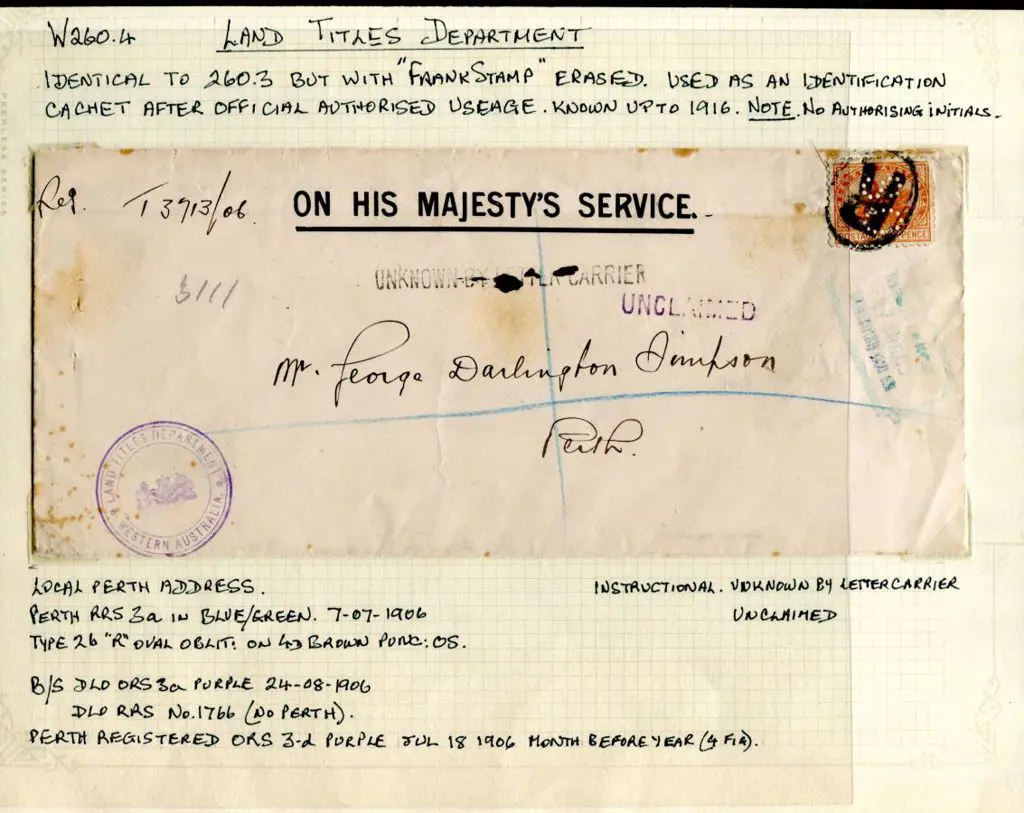 W260.4 LAND TITLES DEPARTMENT
IDENTICAL TO 260.3 BUT WITH "FRANK STAMP" ERASED. USED AS AN IDENTIFICATION
CACHET AFTER OFFICIAL AUTHORISED USEAGE. KNOWN UP TO 1916. NOTE. NO AUTHORISING INITIALS.
Reg. T 3913/06. ON HIS MAJESTY'S SERVICE.
R
OS
PENCE
3111
UNKNOWN BY LETTER CARRIER
UNCLAIMED
Mr. George Darlington Simpson
Perth.
LAND TITLES DEPARTMENT
WESTERN AUSTRALIA
LOCAL PERTH ADDRESS. INSTRUCTIONAL. UNKNOWN BY LETTER CARRIER
PERTH RRS 3a IN BLUE/GREEN. 7-07-1906 UNCLAIMED
TYPE 26 "R" OVAL OBLIT: ON 4D BROWN PUNC: OS.
B/S DLO ORS 3a PURPLE 24-08-1906
DLO RRS No.1766 (NO PERTH).
PERTH REGISTERED ORS 3-d PURPLE JUL 18 1906 MONTH BEFORE YEAR (4 FIG).
PEERLESS SERIES